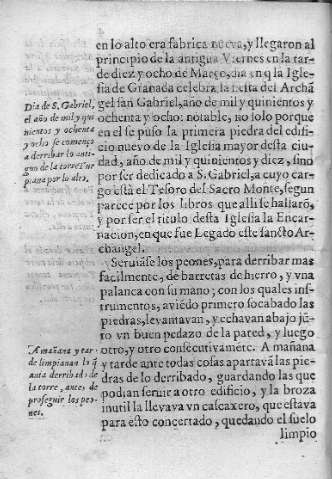 en lo alto era fabrica nueva, y llegaron al
principio de la antigua Viernes en la tar-
de diez y ocho de Março, dia en q la Igle-
sia de Granada celebra la fiesta del Archã
gel san Gabriel, año de mil y quinientos y
ochenta y ocho: notable, no solo porque
en el se puso la primera piedra del edifi-
cio nuevo de la Iglesia mayor desta ciu-
dad, año de mil y quinientos y diez, sino
por ser dedicado a S. Gabriel, a cuyo car-
go està el Tesoro del Sacro Monte, segun
parece por los libros que alli se hallarõ,
y por ser el titulo desta Iglesia la Encar-
nacion, en que fue Legado este sancto Ar-
changel.
Seruiãse los peones, para derribar mas
facilmente, de barretas de hierro, y vna
palanca con su mano; con los quales ins-
trumentos, aviẽdo primero socabado las
piedras, levantavan, y echavan abajo jũ-
to vn buen pedazo de la pared, y luego
otro, y otro consecutivamẽte. A mañana
y tarde ante todas cosas apartavã las pie-
dras de lo derribado, guardando las que
podian servir a otro edificio, y la broza
inutil la llevava vn cascaxero, que estava
para esto concertado, quedando el suelo
limpio
Dia de S. Gabriel,
el año de mil y qui
nientos y ochenta
y ocho se começo
a derribar lo anti-
guo de la torre Tur
piana por lo alto.
A mañana y tar-
de limpiavan la q̃
avia derribado de
la torre, antes de
proseguir los peo-
nes.